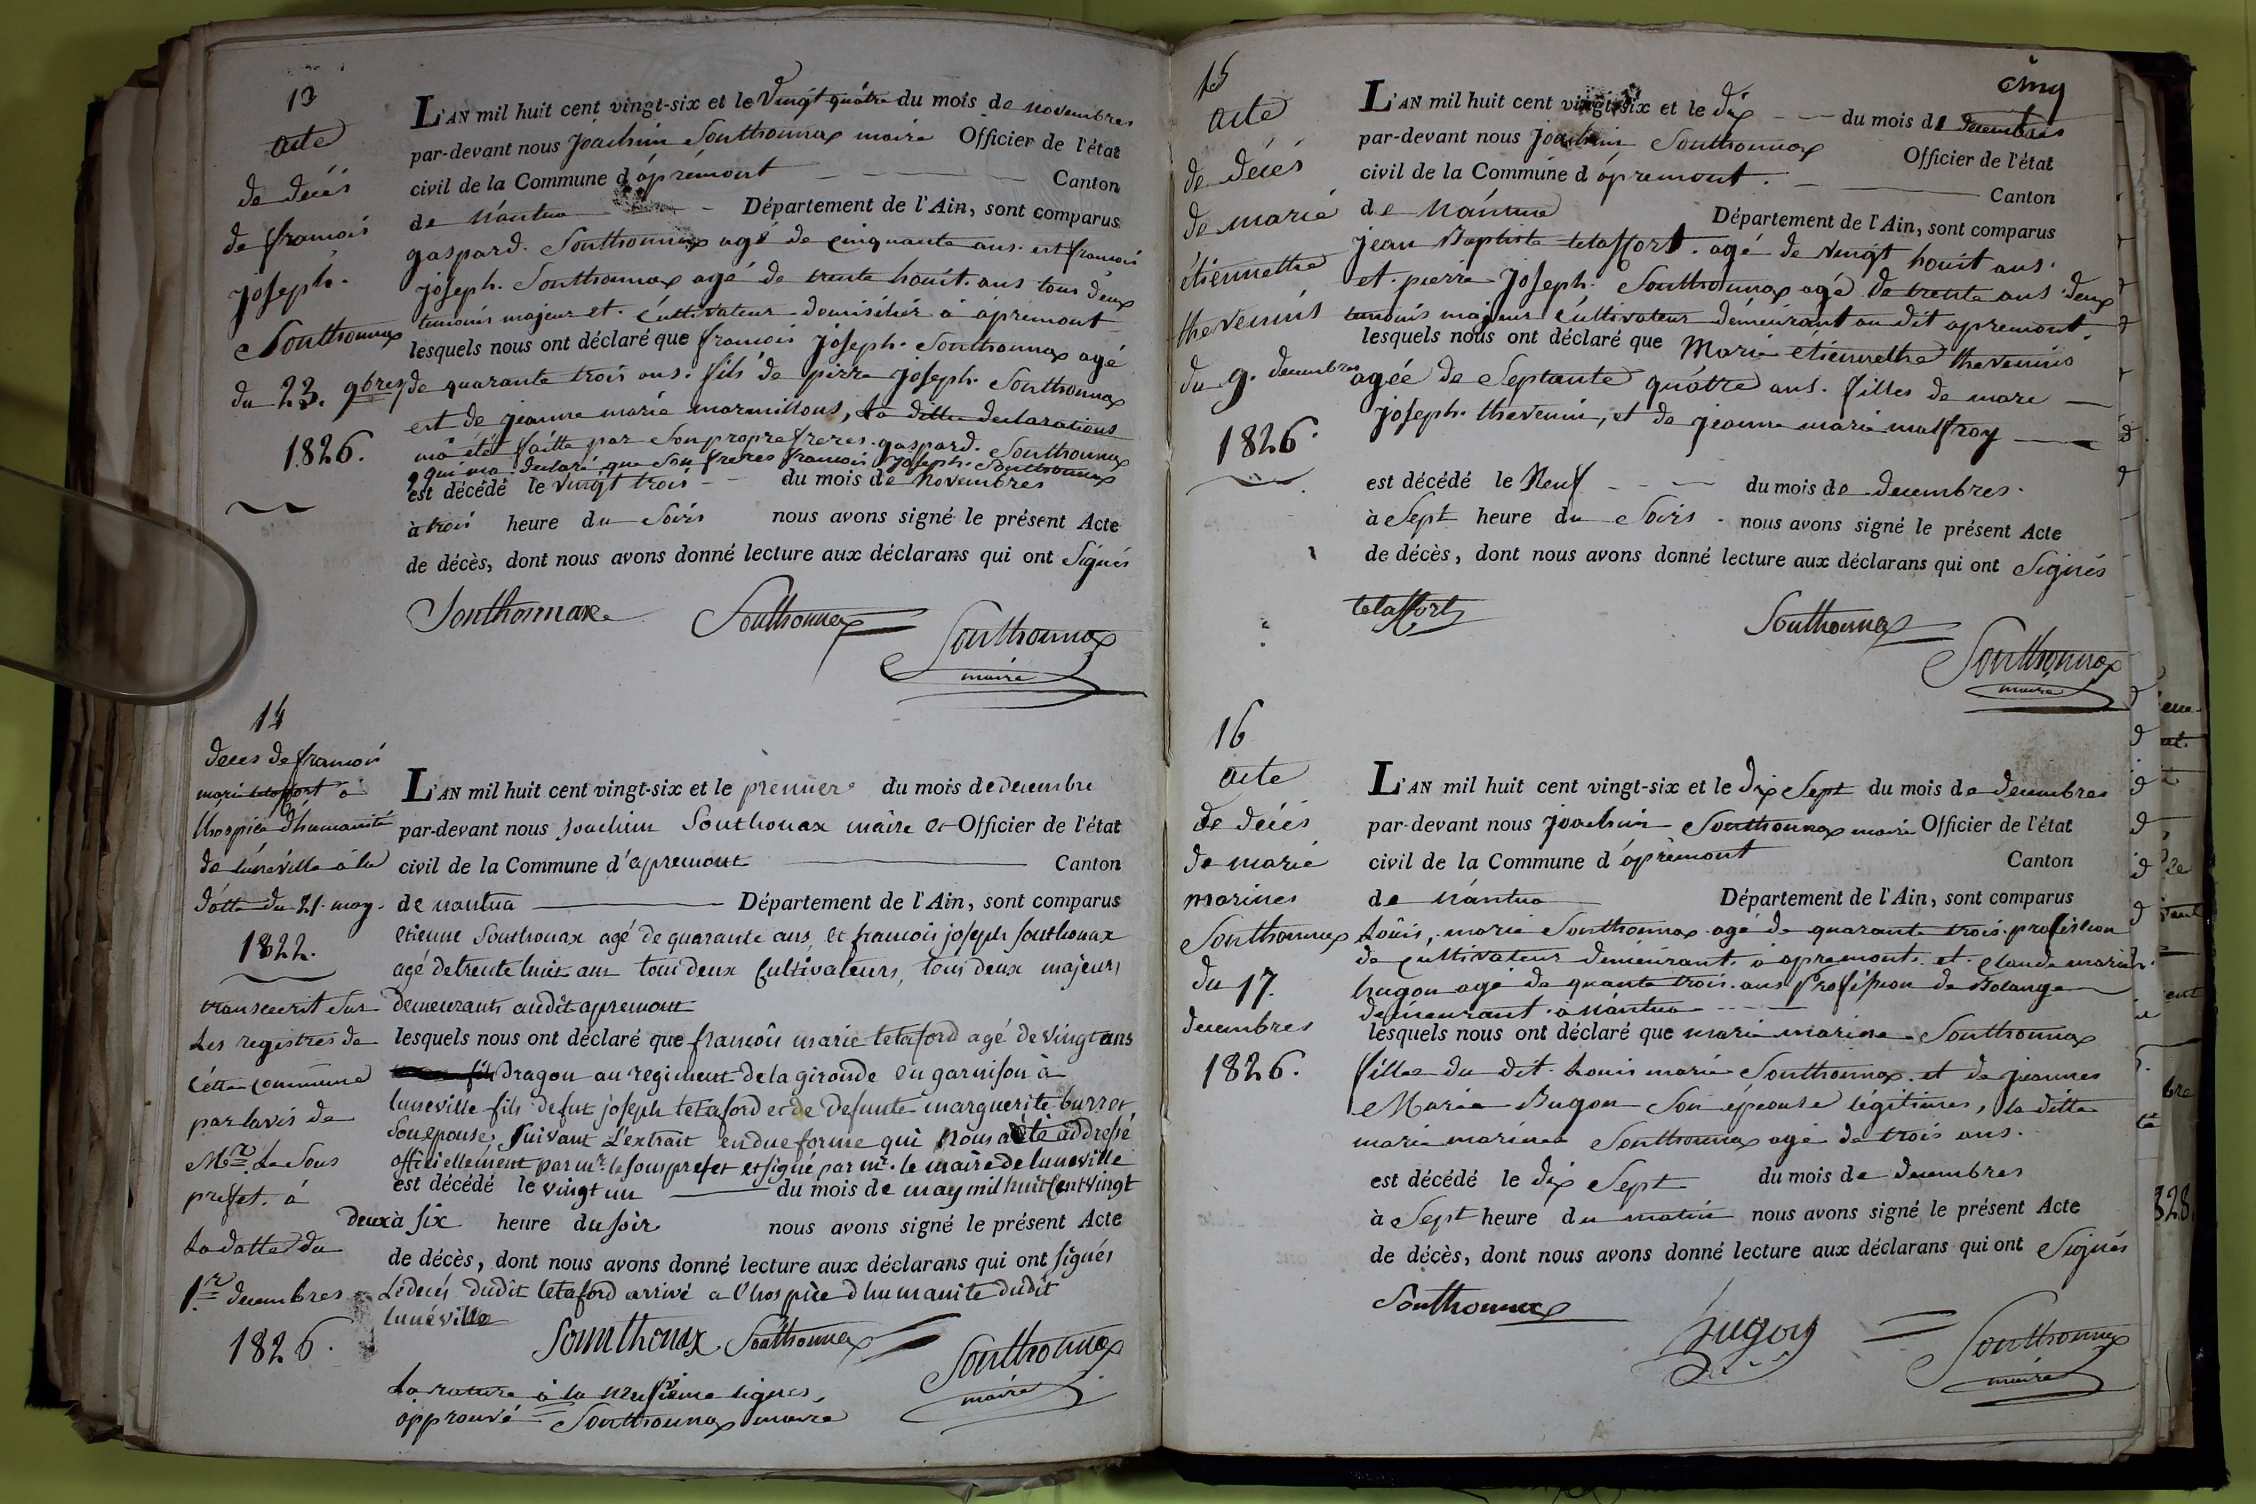 13
acte
de décés
de francois
joseph.
Southonnax
du 23. 9bres
1826.
L'AN mil huit cent vingt-six et le Vingt quátre du mois de novembres
par-devant nous joachim Southonnax maire Officier de l'état
civil de la Commune d'ápremont Canton
de Nantua Département de l'Ain, sont comparus
gaspard. Southonnax agé de cinquante ans. est francois
joseph. Southonnax agé de trente houit. ans tous deux
temoins majeur et. cultivateur domicilier à ápremont
lesquels nous ont déclaré que francois joseph. Southonnax agé
de quarante trois ans. fils de pierre joseph. Southonnax
est de jeanne marie marmillons, la ditte declarations
má été faitte par son propre freres. gaspard. Southonnax
qui ma declaré que son freres francois joseph. Southonnax
est décédé le vingt trois du mois de Novembres
à trois heure du Soirs nous avons signé le présent Acte
de décès, dont nous avons donné lecture aux déclarans qui ont Signés
Southonnax Southonnax Southonnax
maire
14
deces de francois
marie letaffort à
lhospice d'humanité
de luneville à la
dátte du 21. may.
1822.
transcerit sur
Les registres de
Cétte commune
par lavis de
Mr. Le Sous
prefet. à
La datte du
1r decembres
1826.
L'AN mil huit cent vingt-six et le premier du mois de decembre
par-devant nous joachim Southonax maire et Officier de l'état
civil de la Commune d'apremont Canton
de nantua Département de l'Ain, sont comparus
etienne Southonax agé de quarante ans, et francois joseph Southonax
agé de trente huit ans tous deux Cultivateurs, tous deux majeurs
demeurants audit apremont
lesquels nous ont déclaré que francois marie letaford agé de vingt ans
Dragon au regiment de la gironde en garnison à
luneville fils defut joseph letaford et de defunte marguerite burret
son epouse, Suivant L'extrait en due forme qui Nous a eté addressé
officiellement par mr. le sous prefet et signé par mr. le maire de luneville
est décédé le vingt un du mois de may mil huit Cent vingt
deux à six heure du soir nous avons signé le présent Acte
de décès, dont nous avons donné lecture aux déclarans qui ont signés
Ledecés dudit letaford arrivé a l'hospice d humanite dudit
lunéville
Sounthonax Southonnax Southonnax
maire
La rature à la neufvieme lignes
ápprouvé Southonnax maire
cinq
15
acte
de décés
de marie
étiennette
thevenins
du 9. decembres
1826.
L'AN mil huit cent vingt-six et le dix du mois de decembres
par-devant nous joachim Southonnax Officier de l'état
civil de la Commune d'ápremont. Canton
de Nantua Département de l'Ain, sont comparus
jean Baptiste letaffort. agé de vingt houit ans.
et. pierre joseph. Southonnax agé de trente ans deux
temoins majeur cultivateur démeurant au dit apremont
lesquels nous ont déclaré que Marie etiennette thevenins
agée de Septante quátre ans. filles de marc
joseph. thevenin, et de jeanne marie malfroy
est décédé le Neuf du mois de decembres.
à Sept heure du Soirs. nous avons signé le présent Acte
de décès, dont nous avons donné lecture aux déclarans qui ont Signés
letaffort Southonnax Southonnax
maire
16
acte
de décés
de marie
marines
Southonnax
du 17.
decembres
1826.
L'AN mil huit cent vingt-six et le dix Sept du mois de decembres
par-devant nous joachim Southonnax maire Officier de l'état
civil de la Commune d'ápremont Canton
de Nántua Département de l'Ain, sont comparus
Loûis, marie Southonnax agé de quarante trois. profission
de cultivateur démeurant. à apremont. et. claude marie
hugon agé de quante trois. ans Profission de Bolanger
demeurant. à Nántua
lesquels nous ont déclaré que marie marine Southonnax
filles du dit. Louis marie Southonnax. et de jeannes
Marie Bugon Son épeouse légitimes, la ditte
marie marines Southonnax agé de trois ans.
est décédé le dix Sept du mois de decembres
à Sept heure du matin nous avons signé le présent Acte
de décès, dont nous avons donné lecture aux déclarans qui ont Signés
Southonnax hugon Southonnax
maire